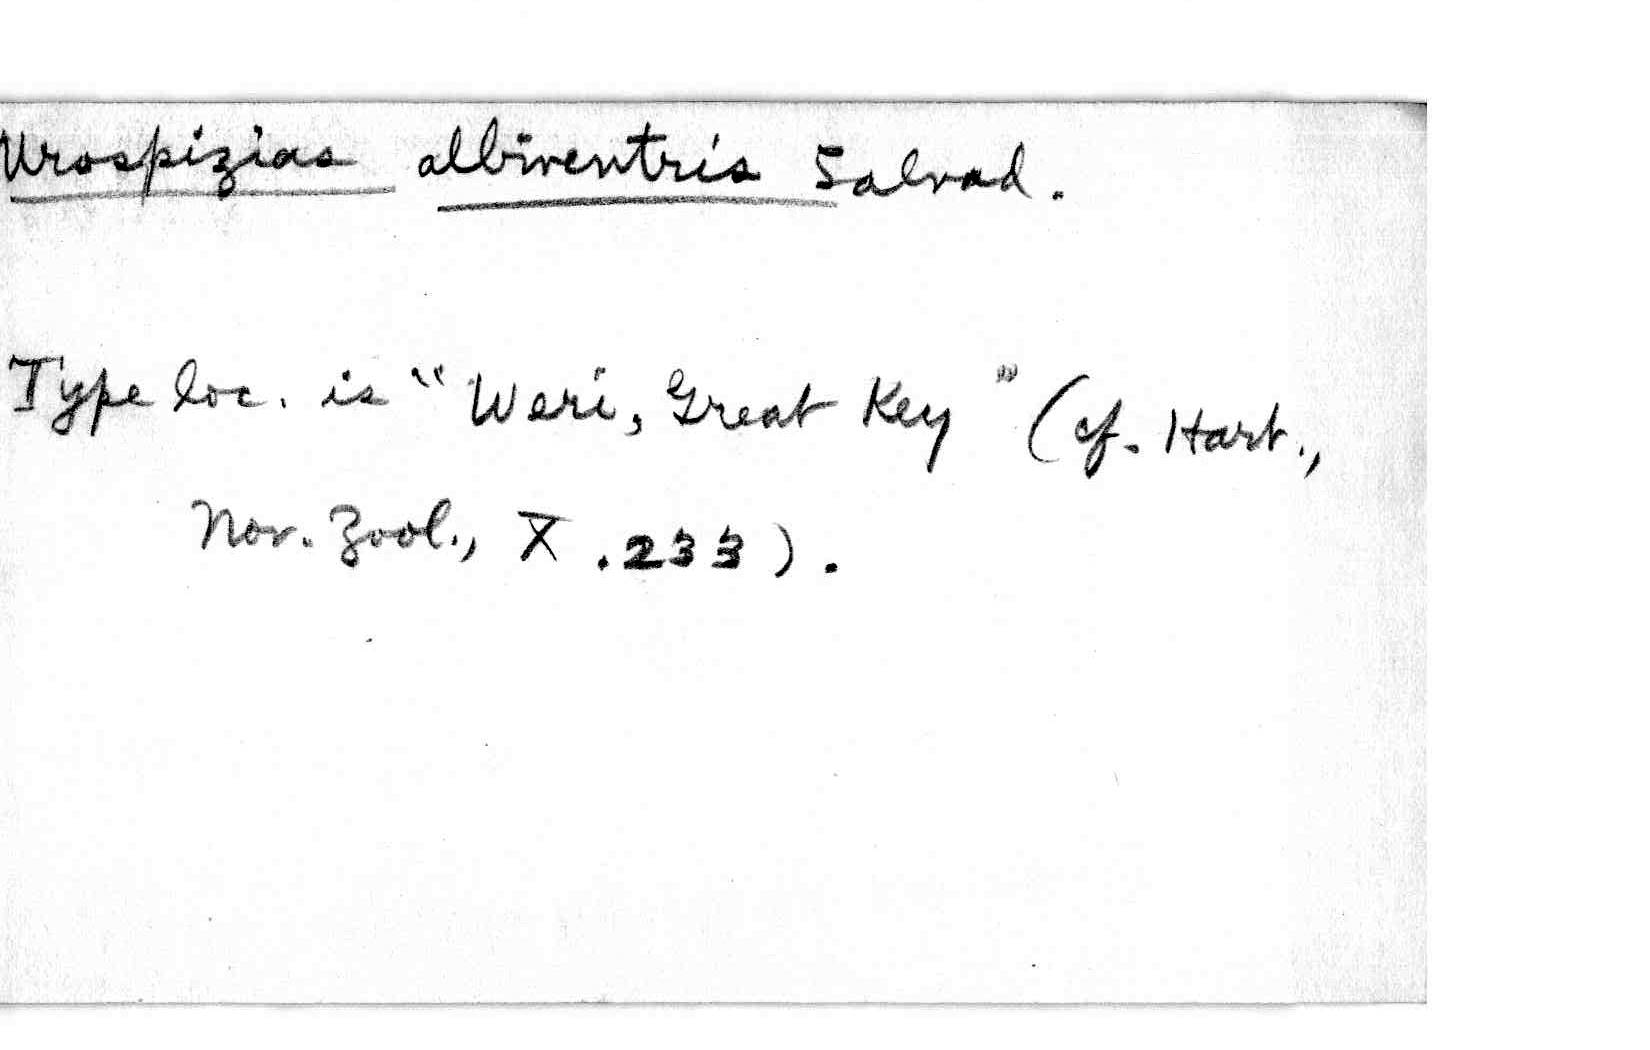 Urospizias albiventris Salvad.
Type loc. is "Weri, Great Key" (cf. Hart.,
Nov. Zool., X. 233).